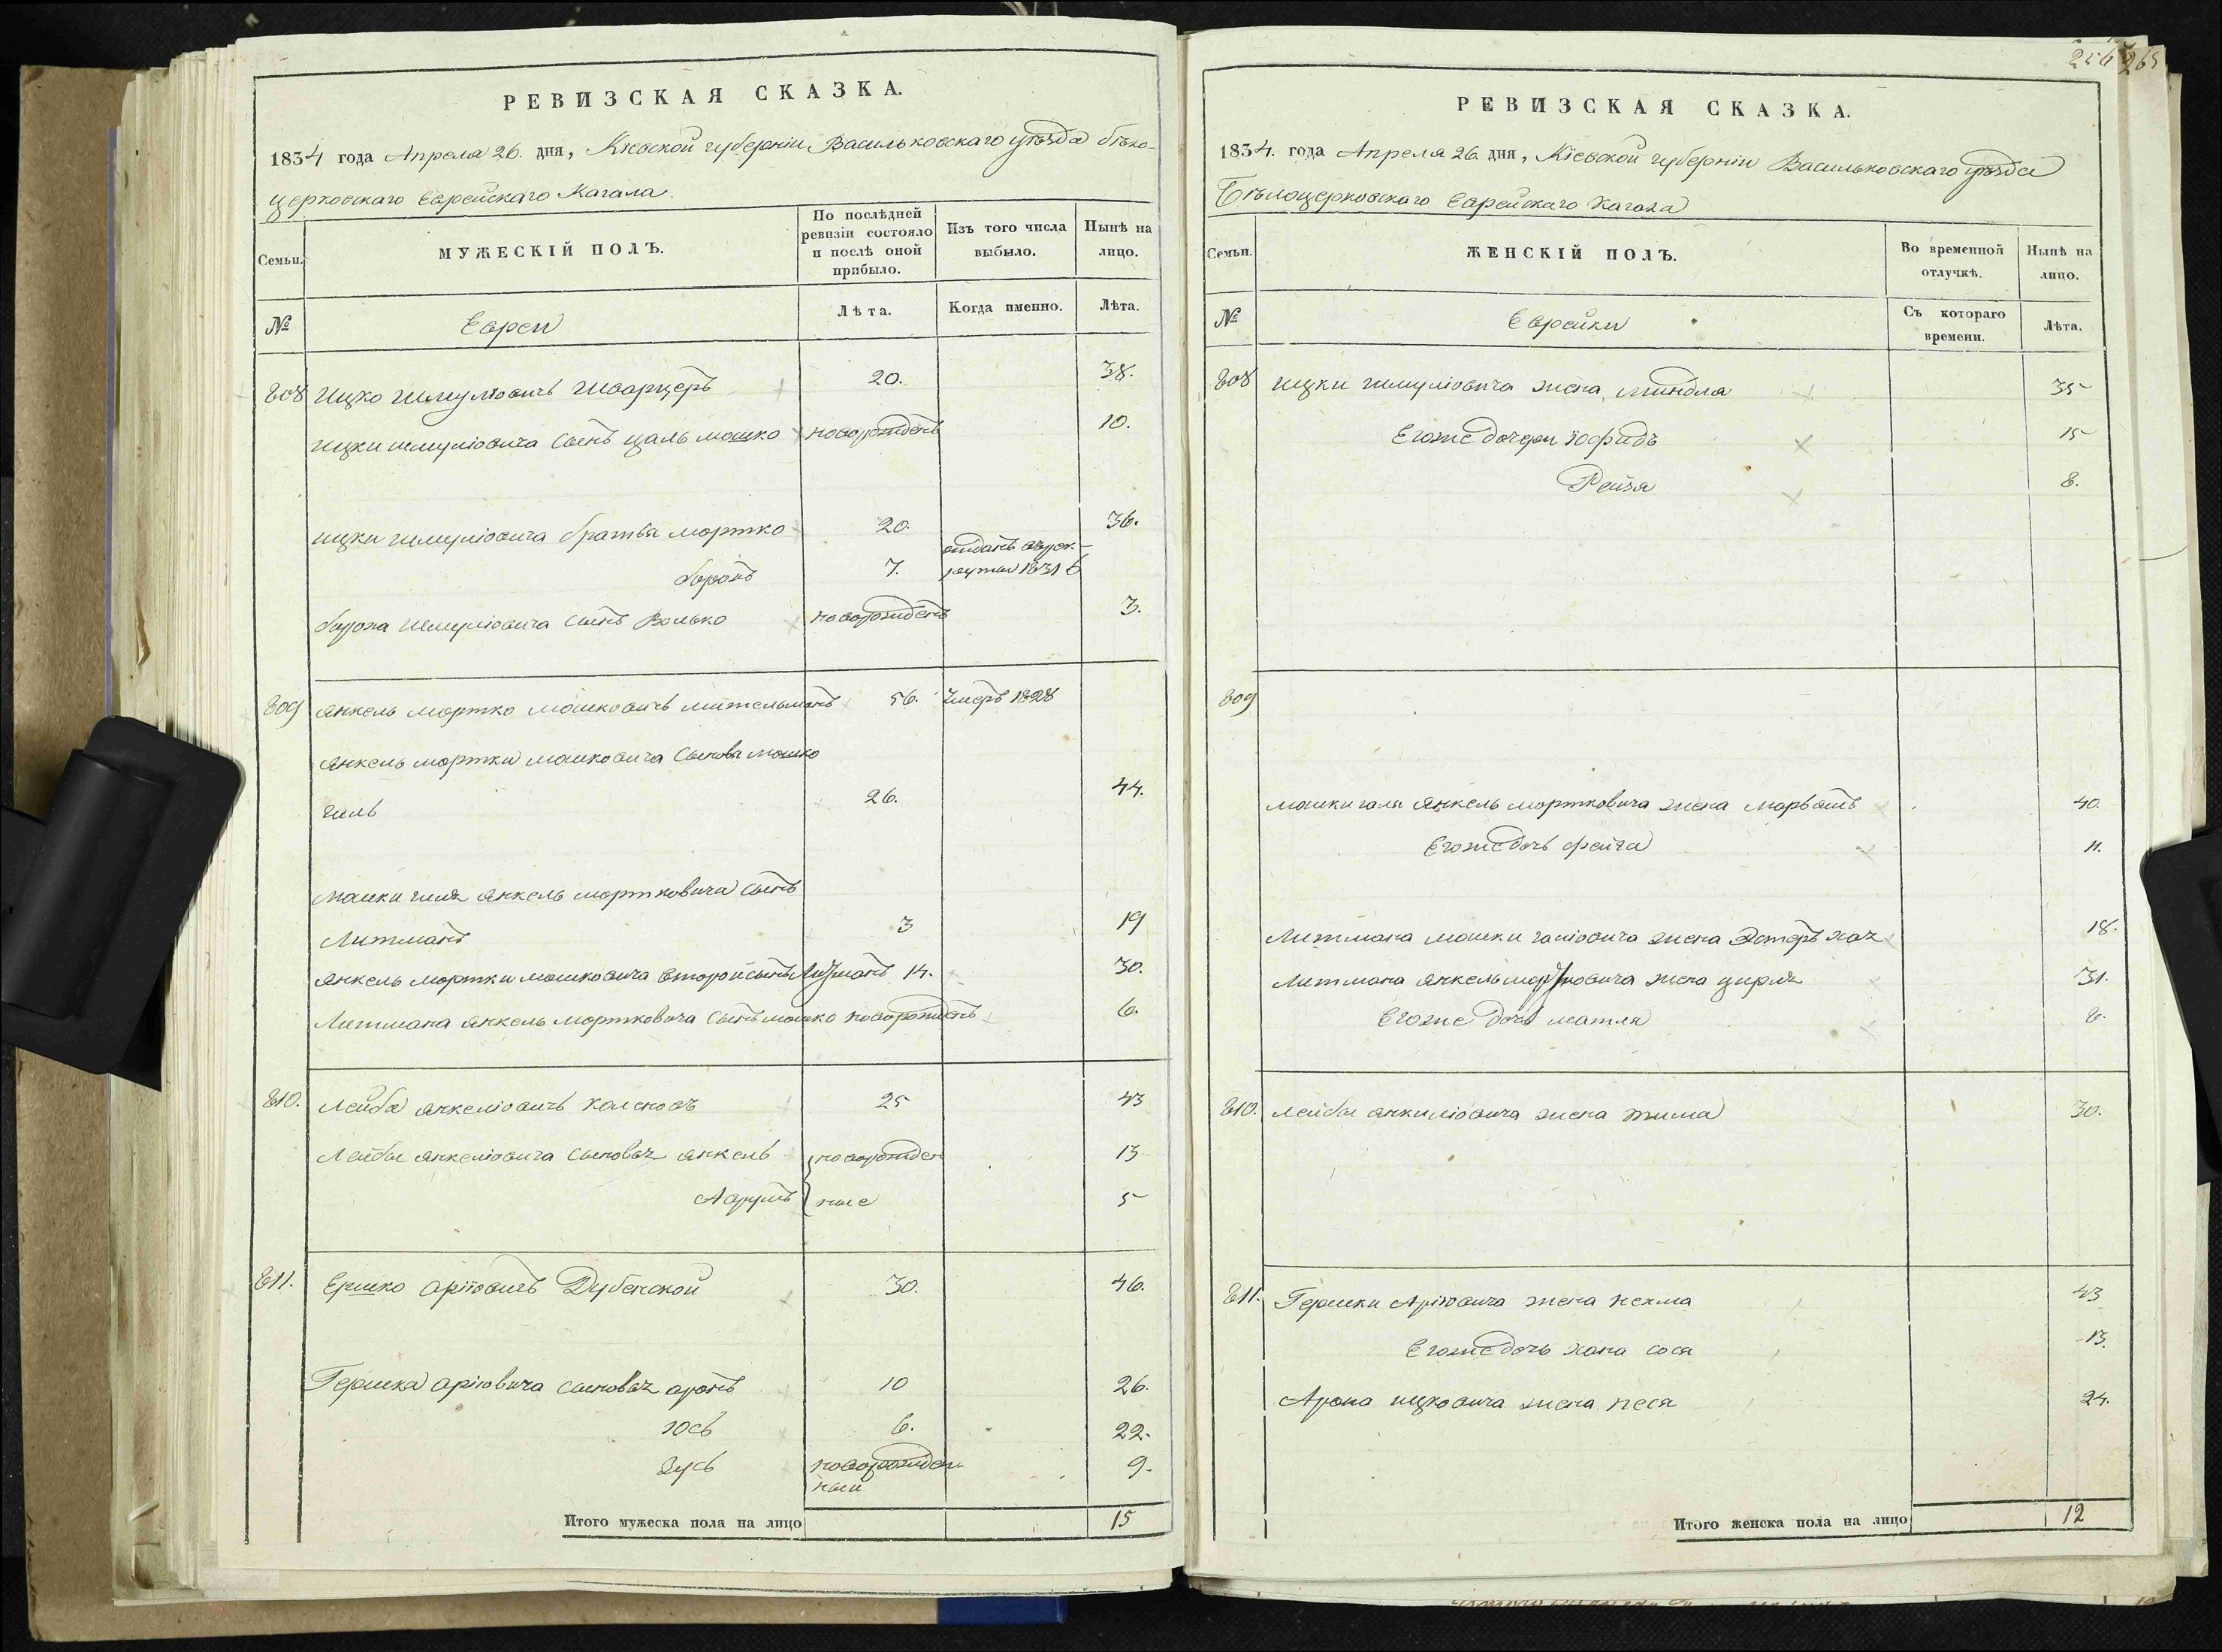 РЕВИЗСКАЯ СКАЗКА.
1834 года Апреля 26. дня, Кіевской губерніи Васильковскаго уѣзда бѣло-
церковскаго Еврейскаго Кагала.
Семьи.
МУЖЕСКІЙ ПОЛЪ.
По послѣдней ревизіи состояло и послѣ оной прибыло.
Изъ того числа выбыло.
Нынѣ на лицо.
№
Евреи
Лѣта.
Когда именно.
Лѣта.
808 Ицко Шмуліовичъ Шварцеръ 20. 38.
ицки шмуліовича Сынъ цаль мошко новорожденъ 10.
ицки шмуліовича братья мортко 20. 36.
боронъ 7. отданъ в рекруты 1831
борона Шмуліовича Сынъ Волько новорожденъ 3.
809 анкель мортко мошковичъ мительманъ 56. Умеръ 1828
анкель мортки мошковича Сыновья мошко
гиль 26. 44.
мошки гиля анкель мортковича Сынъ
Литманъ 3 19
анкель мортки мошковича второй сынъ Литманъ 14. 30.
Литмана анкель мортковича Сынъ мошко новорожденъ 6.
810. Лейба анкеліовичъ Колсковъ 25 43
Лейбы анкеліовича Сыновья анкель новорожден 13
Аврумъ ные 5
811. Ершко аріовичъ Дубенской 30. 46.
Гершка аріовича сыновья аронъ 10 26.
Іось 6. 22.
Зусь новорожден- 9.
ный
Итого мужеска пола на лицо 15
256 265
РЕВИЗСКАЯ СКАЗКА.
1834. года Апреля 26. дня, Кіевской губерніи Васильковскаго уѣзда
Бѣлоцерковскаго Еврейскаго кагала
Семьи.
ЖЕНСКІЙ ПОЛЪ.
Во временной отлучкѣ.
Нынѣ на лицо.
№
Еврейки
Съ котораго времени.
Лѣта.
808 ицки шмуліовича жена миндля 35
Егоже дочери іофидъ 15
Рейзя 8.
809
мошки гиля анкель мортковича жена марьяшъ 40.
Егоже дочь фейга 11.
Литмана мошки гиліовича жена Эстеръ хая 18.
Литмана анкель мортковича жена цирля 31.
Егоже дочь матля 8.
810. лейбы анкиліовича жена тима 30.
811. Гершки Аріовича жена нехма 43
Егоже дочь хана сося 13.
Арона ицковича жена песя 24.
Итого женска пола на лицо 12